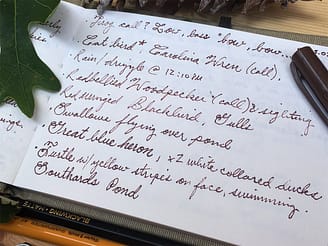 Frog call? Low, bass "bow, bow...
Cat bird & Carolina Wren (call)
Rain/drizzle @ 12:10 PM
Redbellied Woodpecker (call) & sighting
Redwinged Blackbird, Gulls
Swallows flying over pond
Great blue heron, x2 white collared ducks
Turtle w/ yellow stripes on face, swimming.
Southards Pond
BLACKWING MATTE